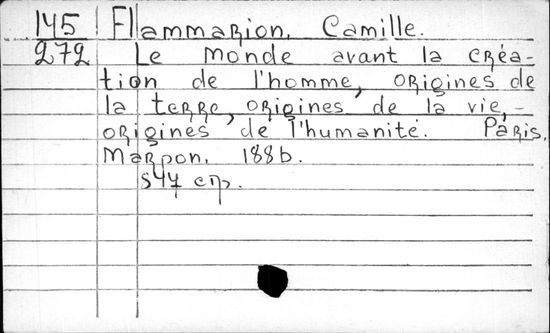 145 Flammarion, Camille.
272 Le monde avant la créa-
tion de l'homme, origines de
la terre, origines de la vie,-
origines de l'humanité. Paris,
Marpon, 1886.
847 стр.